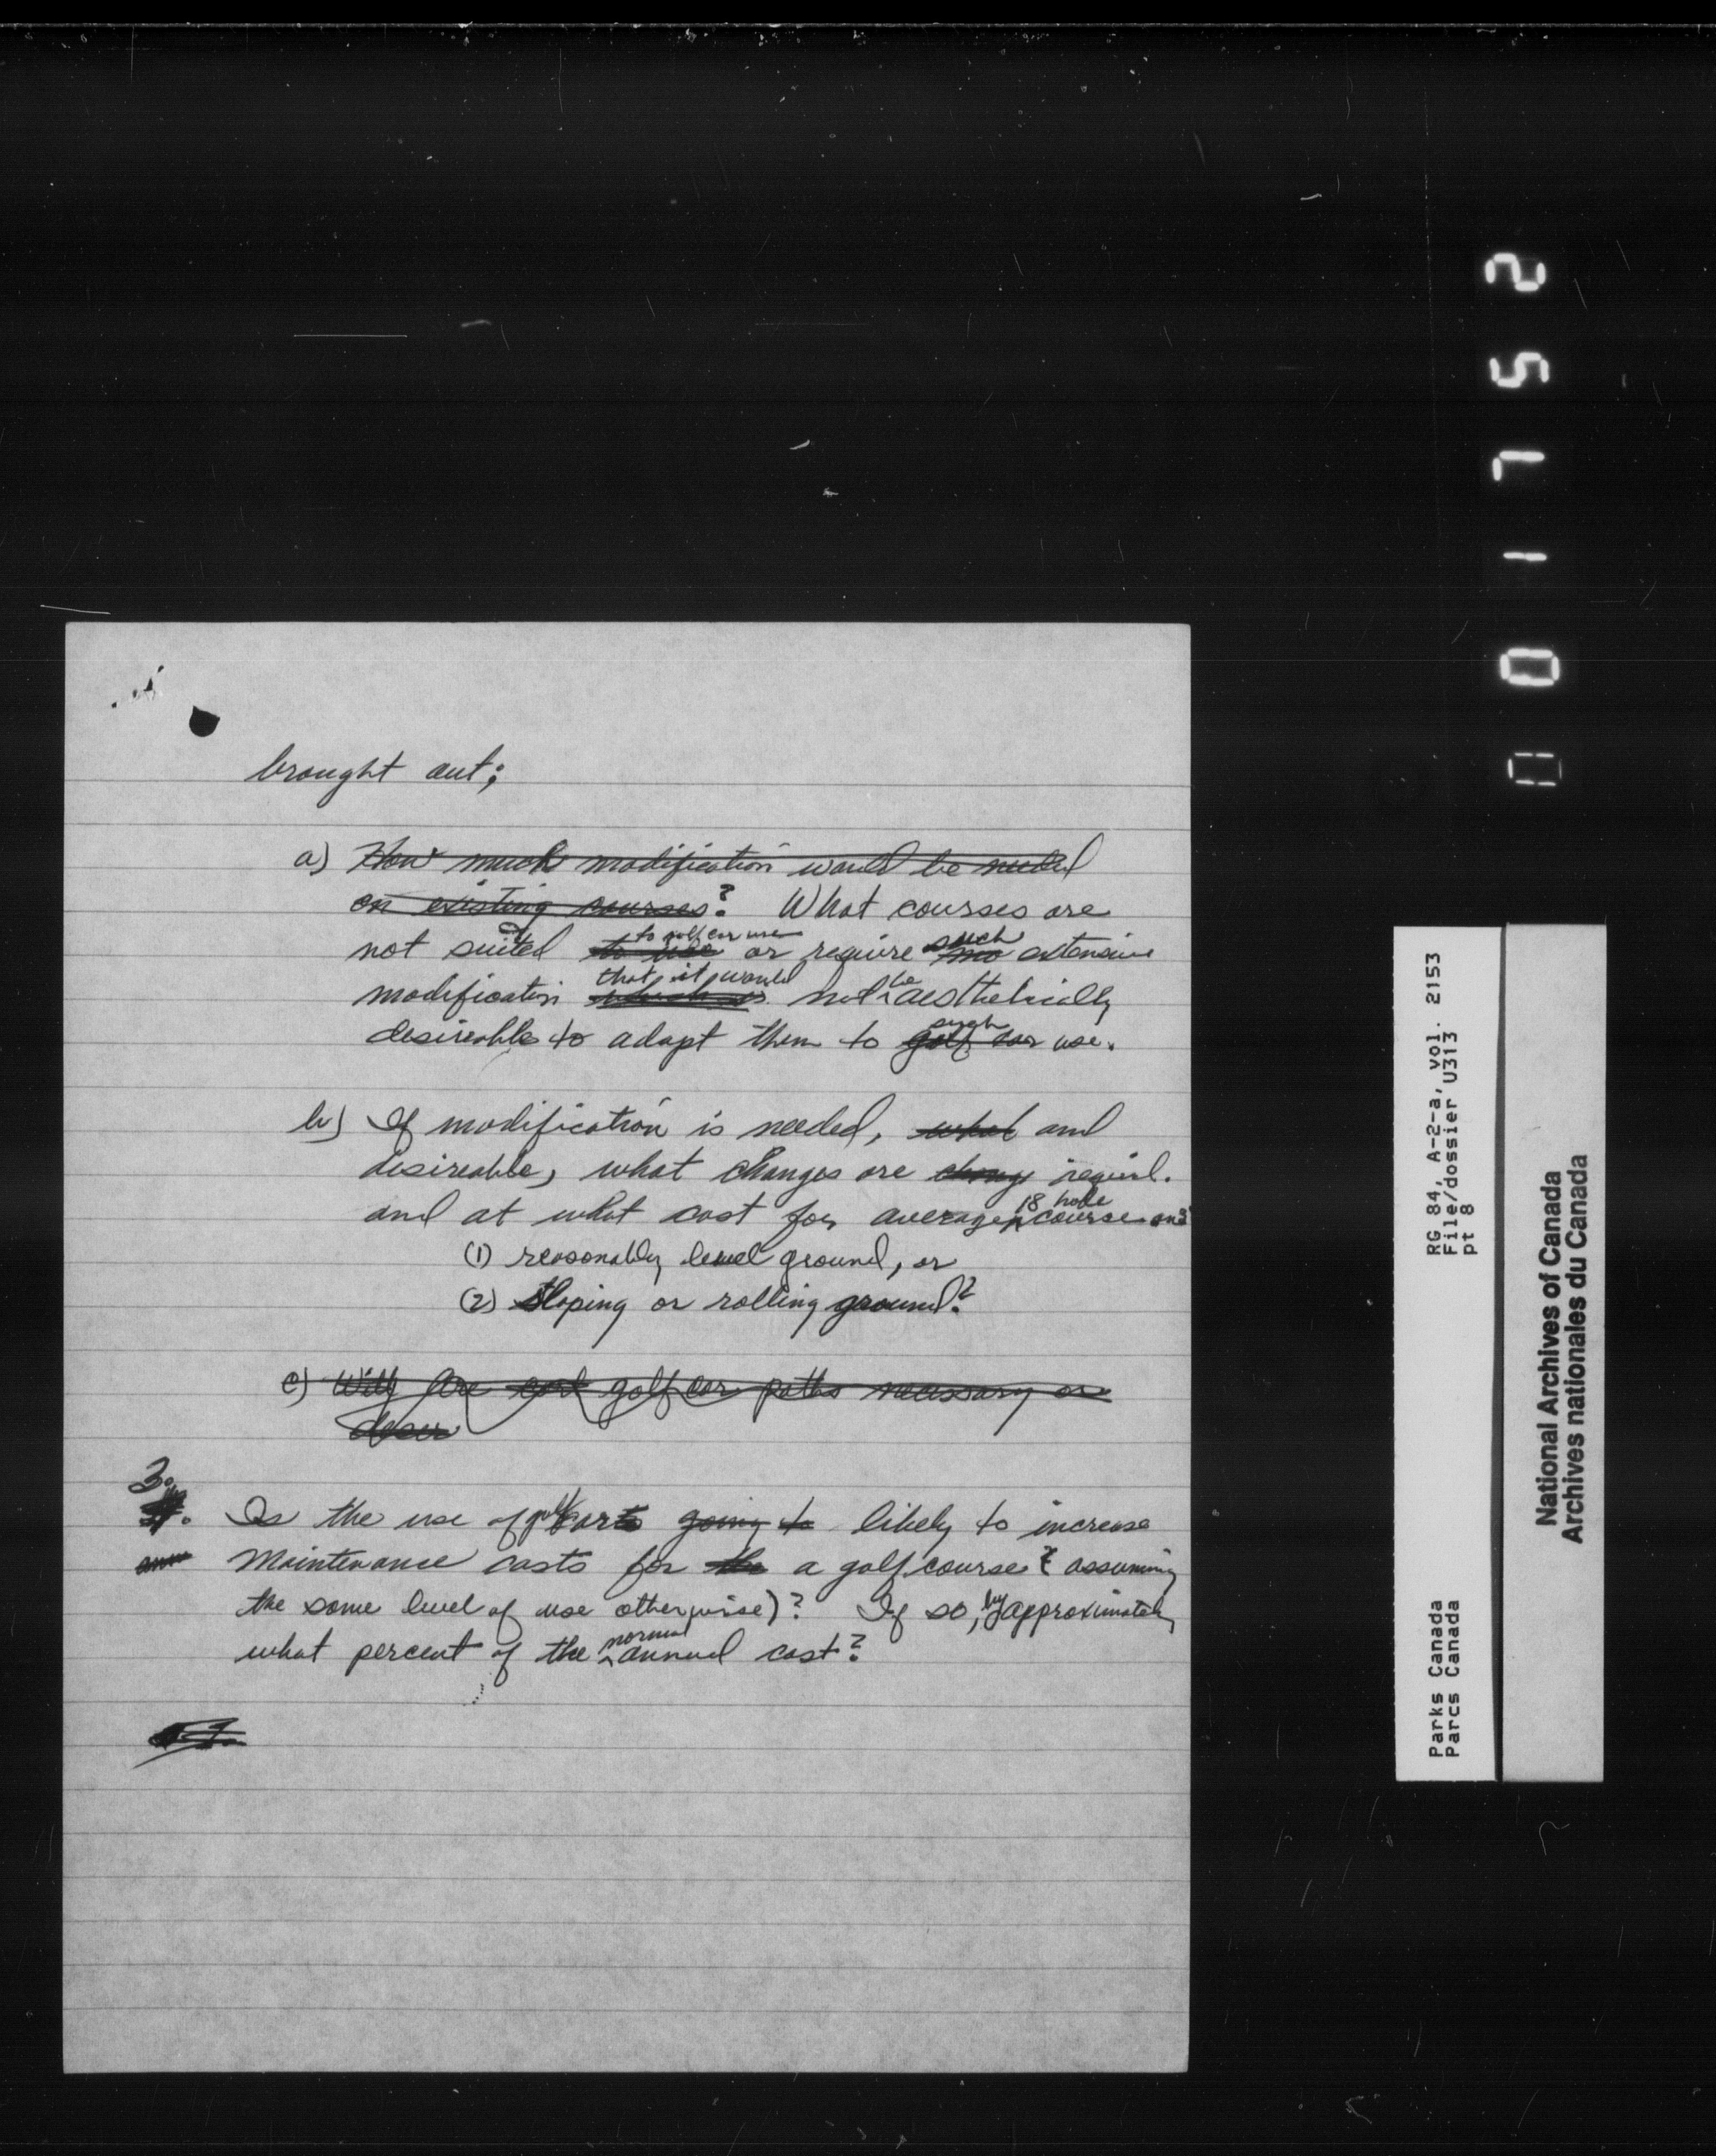 brought out;
a) How much modification would be needed
on existing courses? What courses are
not suited to use to golf car use or require such extensive
modification which is that it would not be aesthetically
desireable to adapt them to golf car such use.
b) If modification is needed, what and
desireable, what changes are change requird.
and at what cost for average 18 hole course on:
(1) reasonably level ground, or
(2) sloping or rolling ground?
c) Will Are cart golf car paths necessary or
desir
3.
Is the use of golf carts going to likely to increase
maintenance costs for the a golf course (assuming
the same level of use otherwise)? If so, by approximately
what percent of the normal annual cost?
001752
RG 84, A-2-a, vol. 2153
File/dossier U313
pt 8
Parks Canada
Parcs Canada
National Archives of Canada
Archives nationales du Canada